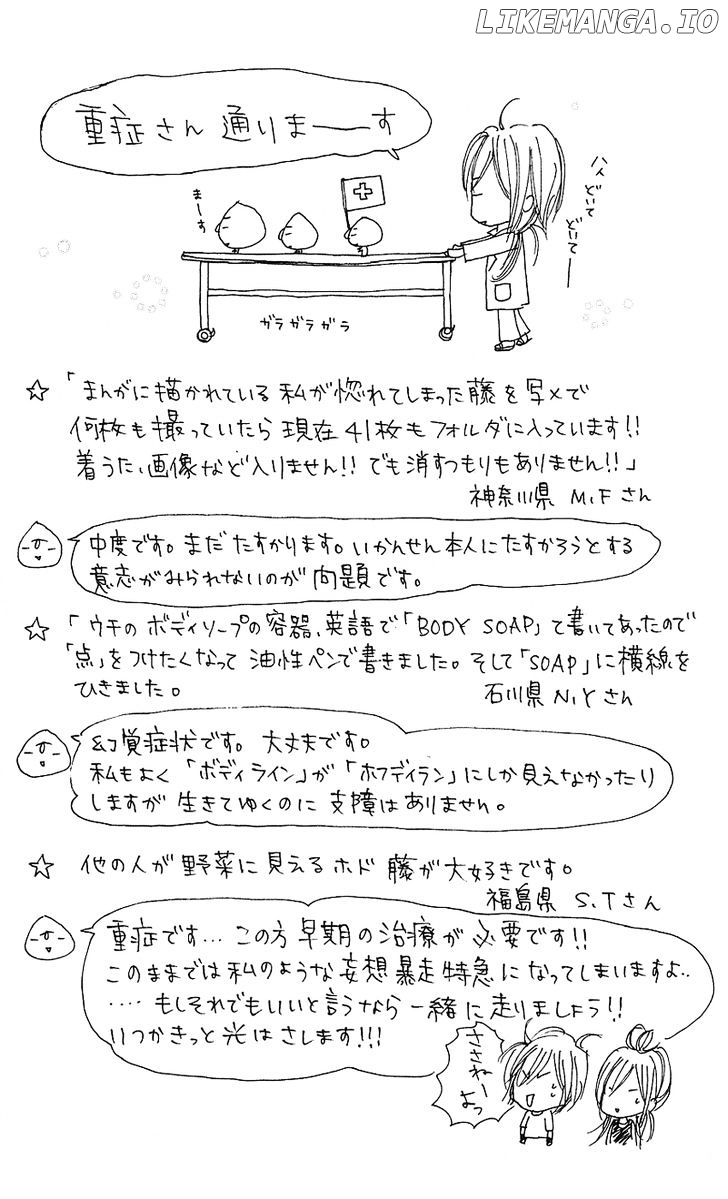 LIKEMANGA.IO
重症さん 通りまーーす
まーす
ハイ どいて どいてー
ガラガラガラ
☆ 「まんがに描かれている 私が惚れてしまった藤を写メで
何枚も撮っていたら 現在41枚もフォルダに入っています!!
着うた、画像など入りません!! でも消すつもりもありません!!」
神奈川県 M.Fさん
中度です。まだたすかります。いかんせん本人にたすかろうとする
意志がみられないのが問題です。
☆ 「ウチの ボディソープの容器、英語で「BODY SOAP」て書いてあったので
「点」をつけたくなって 油性ペンで書きました。そして「SOAP」に横線を
ひきました。
石川県 N.Yさん
幻覚症状です。大丈夫です。
私もよく 「ボディライン」が「ホフディラン」にしか見えなかったり
しますが 生きてゆくのに 支障はありません。
☆ 他の人が野菜に見えるホド 藤が大好きです。
福島県 S.Tさん
重症です… この方 早期の治療が必要です!!
このままでは私のような妄想暴走特急になってしまいますよ‥
‥‥ もしそれでもいいと言うなら 一緒に走りましょう!!
いつかきっと光はさします!!!
ささねーよっ